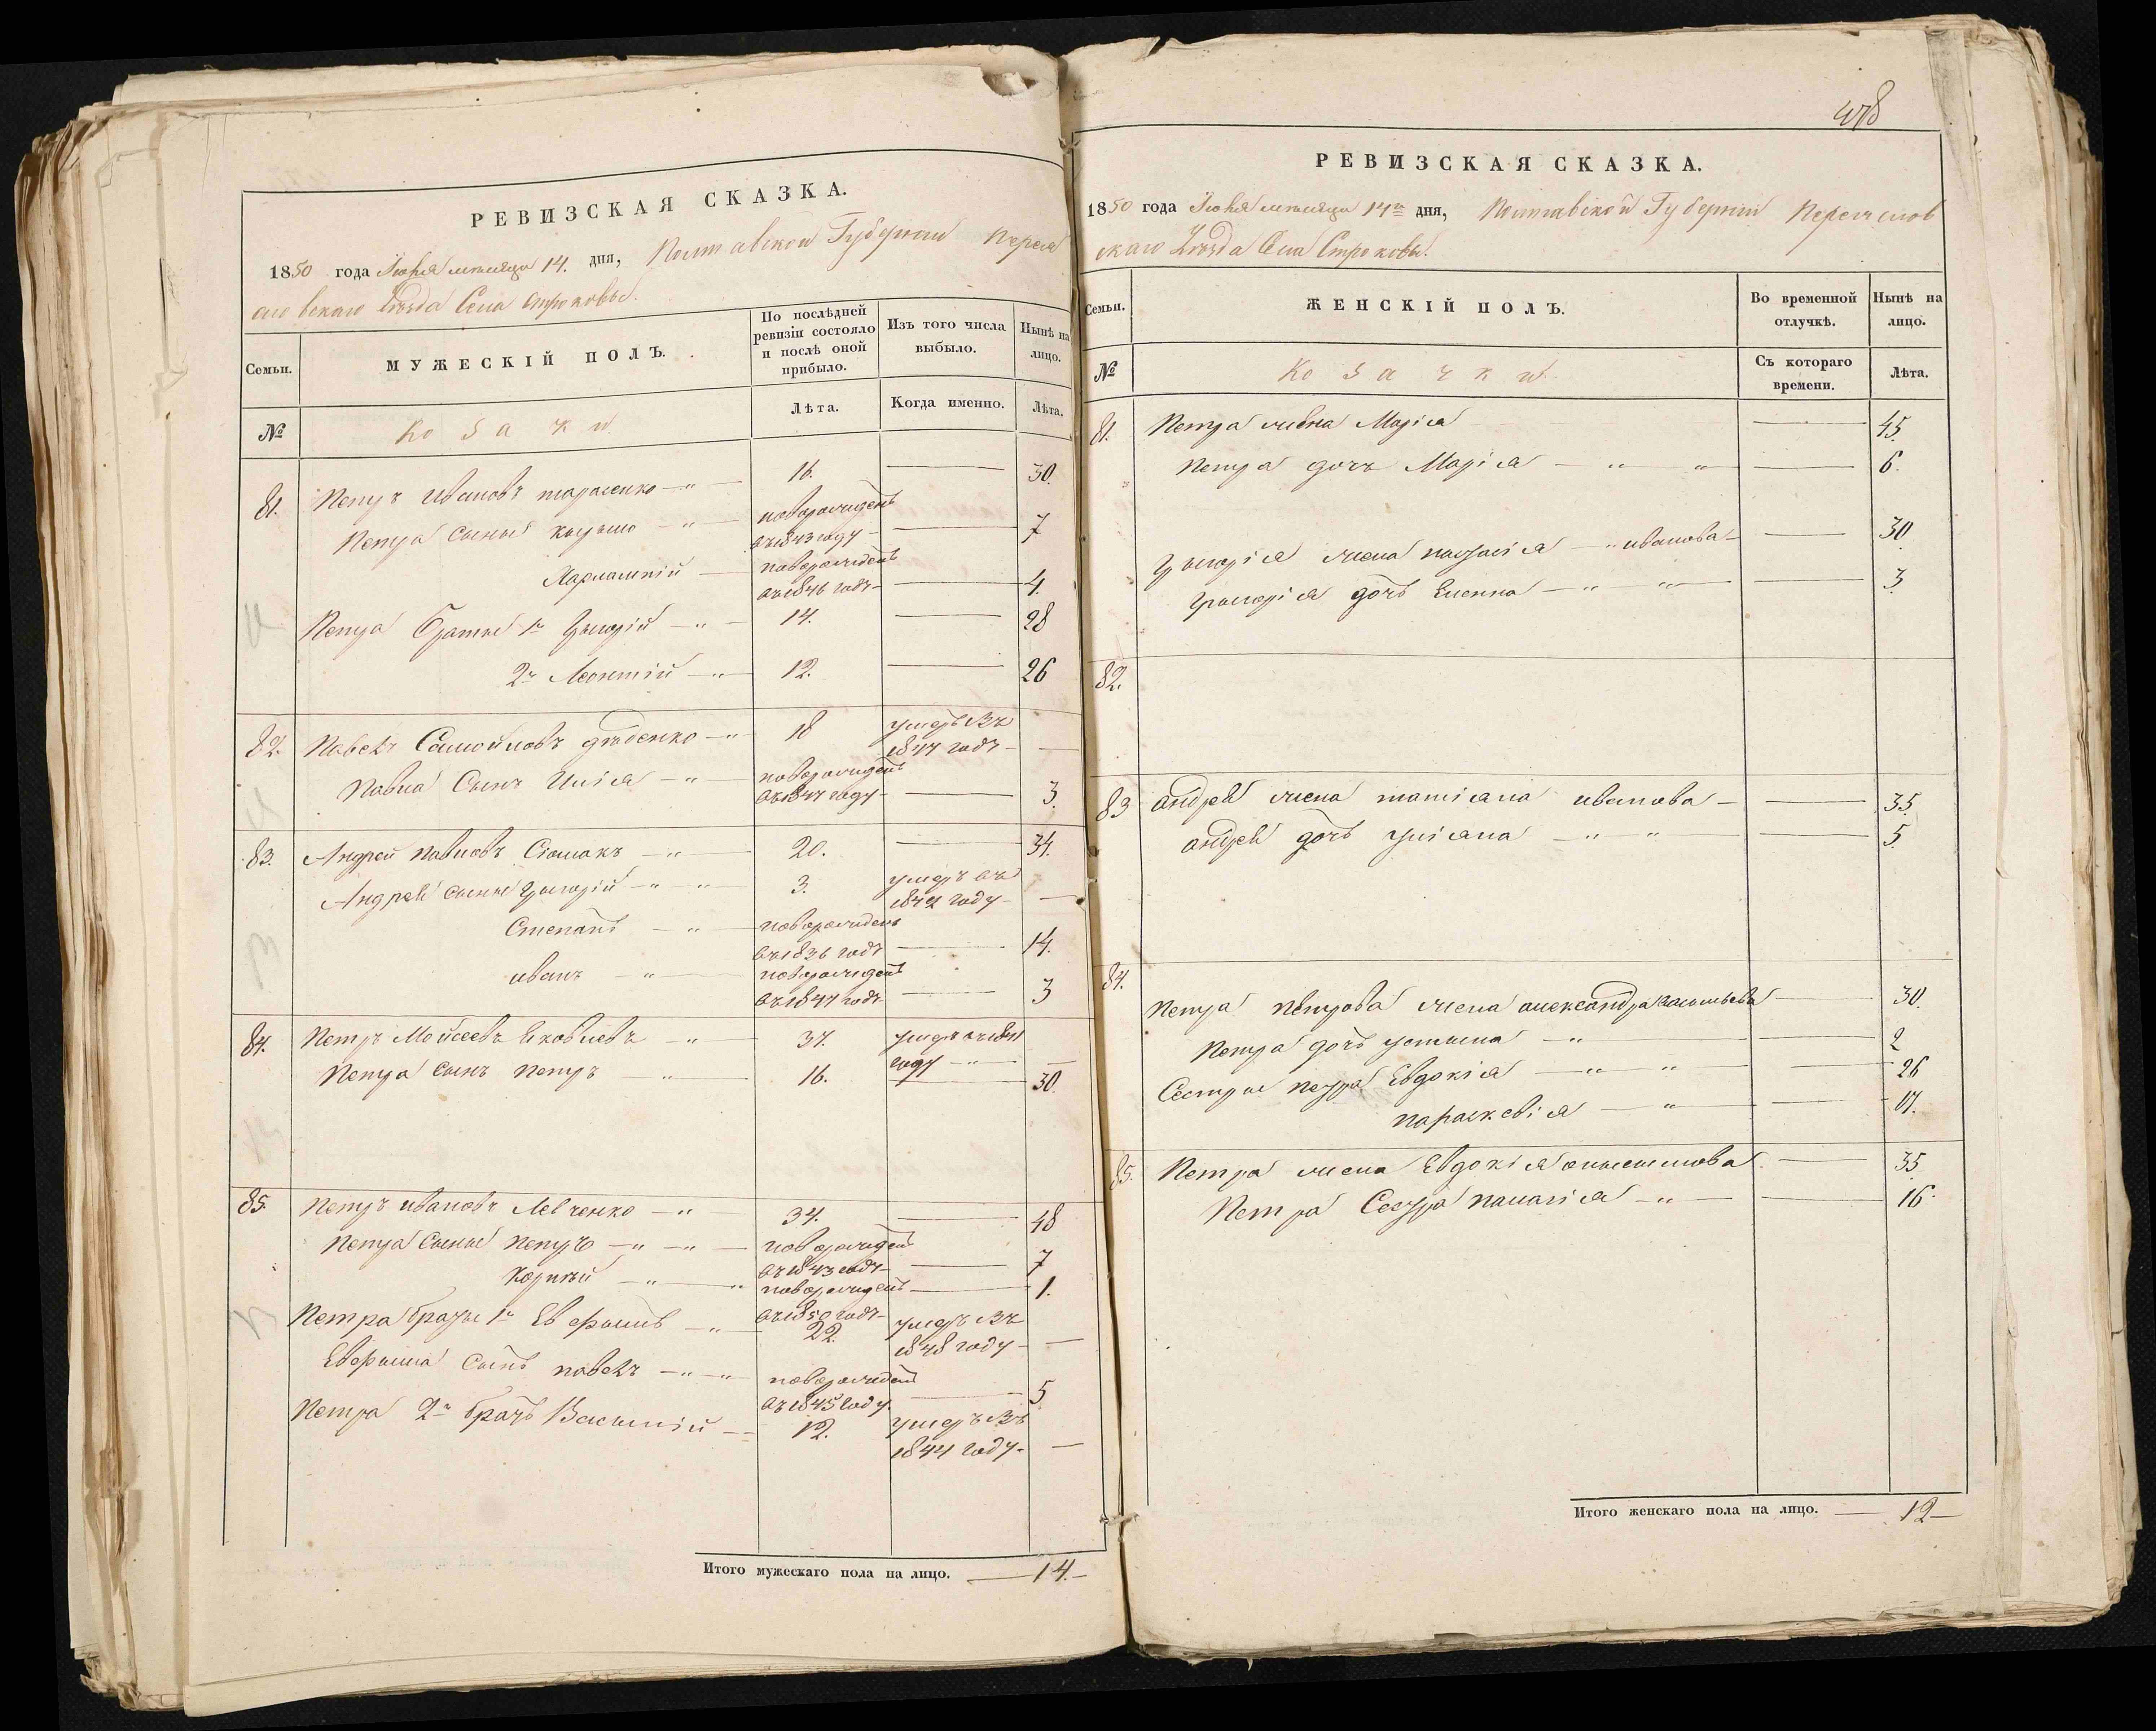 РЕВИЗСКАЯ СКАЗКА.
1850 года Июня месяца 14. дня, Полтавской Губернии Перея
славскаго Уѣзда Села Строковы.
Семьи.
МУЖЕСКІЙ ПОЛЪ.
По послѣдней ревизіи состояло и послѣ оной прибыло.
Изъ того числа выбыло.
Нынѣ на лицо.
№
Козаки
Лѣта.
Когда именно.
Лѣта.
81. Петръ Ивановъ Тарасенко 16. — 30.
Петра сыны новорожденъ въ 1843 году — 7
Харлампій новорожденъ въ 1846 годѣ — 4.
Петра братья 1й Григорій 14. — 28
2й Леонтій 12. — 26
82. Павелъ Самойловъ Дѣденко 18 умеръ въ 1847 годѣ —
Павла сынъ Илія новорожденъ въ 1847 году — 3.
83. Андрей Павловъ Сюмакъ 20. — 34.
Андрея сыны Григорій 3. умеръ въ 1842 году —
Степанъ новорожденъ въ 1836 годѣ — 14.
Иванъ новорожденъ въ 1847 годѣ — 3
84. Петръ Мойсеевъ Яковлевъ 37. умеръ въ году —
Петра сынъ Петръ 16. — 30.
85. Петръ Ивановъ Левченко 34. — 48
Петра сыны Петръ новорожденъ въ 1843 годѣ — 7
Корнѣй новорожденъ въ 1850 годѣ — 1.
Петра братья 1й Евфимъ 22. умеръ въ 1848 году —
Евфима сынъ Павелъ новорожденъ въ 1845 году — 5
Петра 2й братъ Василій 12. умеръ въ 1844 году —
Итого мужескаго пола на лицо. — 14. —
478
РЕВИЗСКАЯ СКАЗКА.
1850 года Июня месяца 14го дня, Полтавской Губерніи Переяслов
скаго Уѣзда Села Строковы.
Семьи.
ЖЕНСКІЙ ПОЛЪ.
Во временной отлучкѣ.
Нынѣ на лицо.
№
Козачки
Съ котораго времени.
Лѣта.
81. Петра Марія — 45.
Петра дочь Марія — 6.
Григорія жена Иванова — 30.
Григорія дочь Еленна — 3.
82.
83 Андрея жена Татіана Иванова — 35.
Андрея дочь Уліана — 5.
84.
Петра Петрова жена Александра Васильева — 30.
Петра дочь Устина — 2
Сестры Петра Евдокія — 26
Параскевія — 17.
85. Петра жена Евдокія — 35.
Петра Сестра Палагія — 16.
Итого женскаго пола на лицо. — 12 —